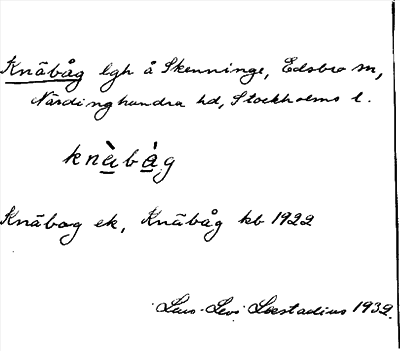 Knäbåg lgh å Skenninge, Edsbro sn,
Närdinghundra hd, Stockholms l.
knàbág
Knäbog ek, Knäbåg kb 1922
Lars-Levi Læstadius 1932.